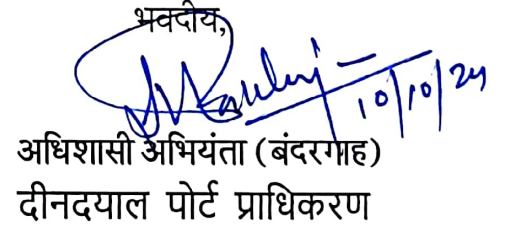 भवदीय,
10/10/24
अधिशासी अभियंता (बंदरगाह)
दीनदयाल पोर्ट प्राधिकरण